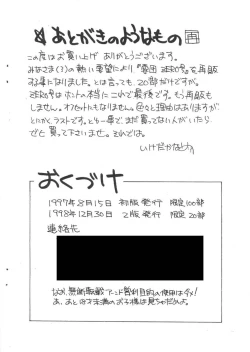 あとがきのようなもの
この度はお買い上げ ありがとうございます。
みなさま(?)の熱い要望により「 ZERO号」を再販
する事になりました。とは言っても 20部だけですが。
ZERO号は ホントの本当に これで最後です。もう再販も
しません。オフセットにもなりません。色々と理由はありますが、
とにかく、ラストです。とりあえず、まだ買ってない人がいたら
でも 買って下さいませ。それでは。
いけだかなとか
おくづけ
1997年8月15日 初版発行 限定100部
1998年12月30日 2版発行 限定20部
連絡先
なお、無断転載アンド営利目的の使用はダメ!
あ、あと 才未満のお子様は見ちゃだめよ。